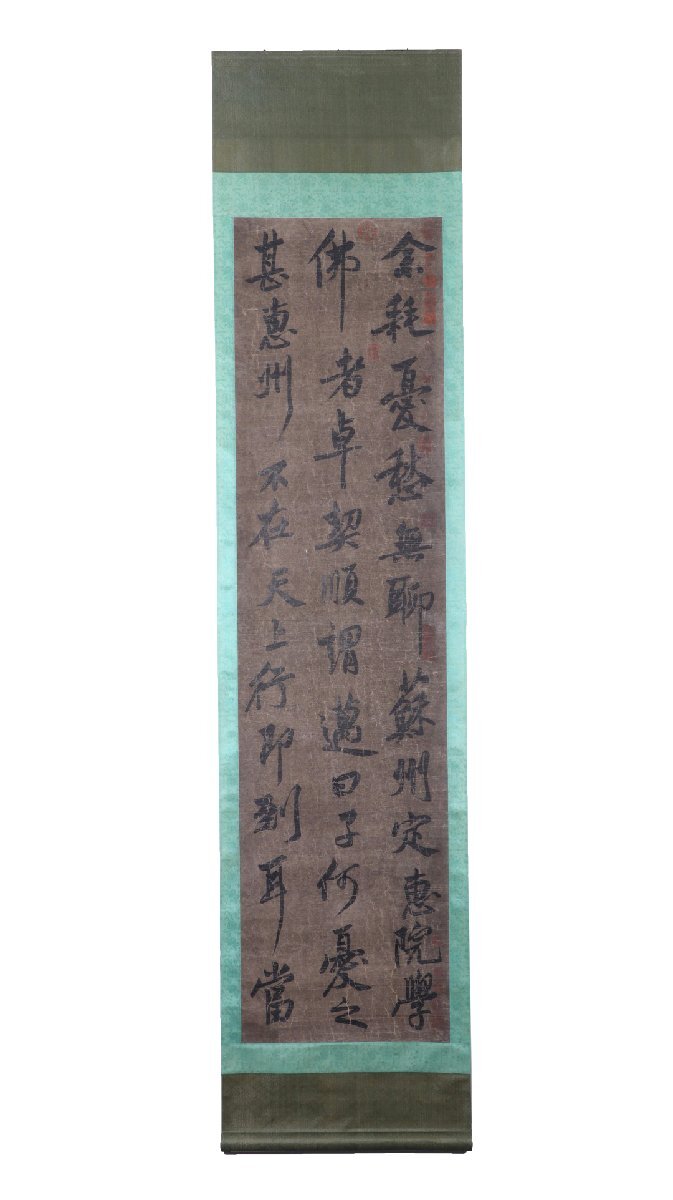 余耗憂愁無聊蘇州定惠院學
佛者卓契順謂邁曰子何憂之
甚惠州不在天上行即到耳當